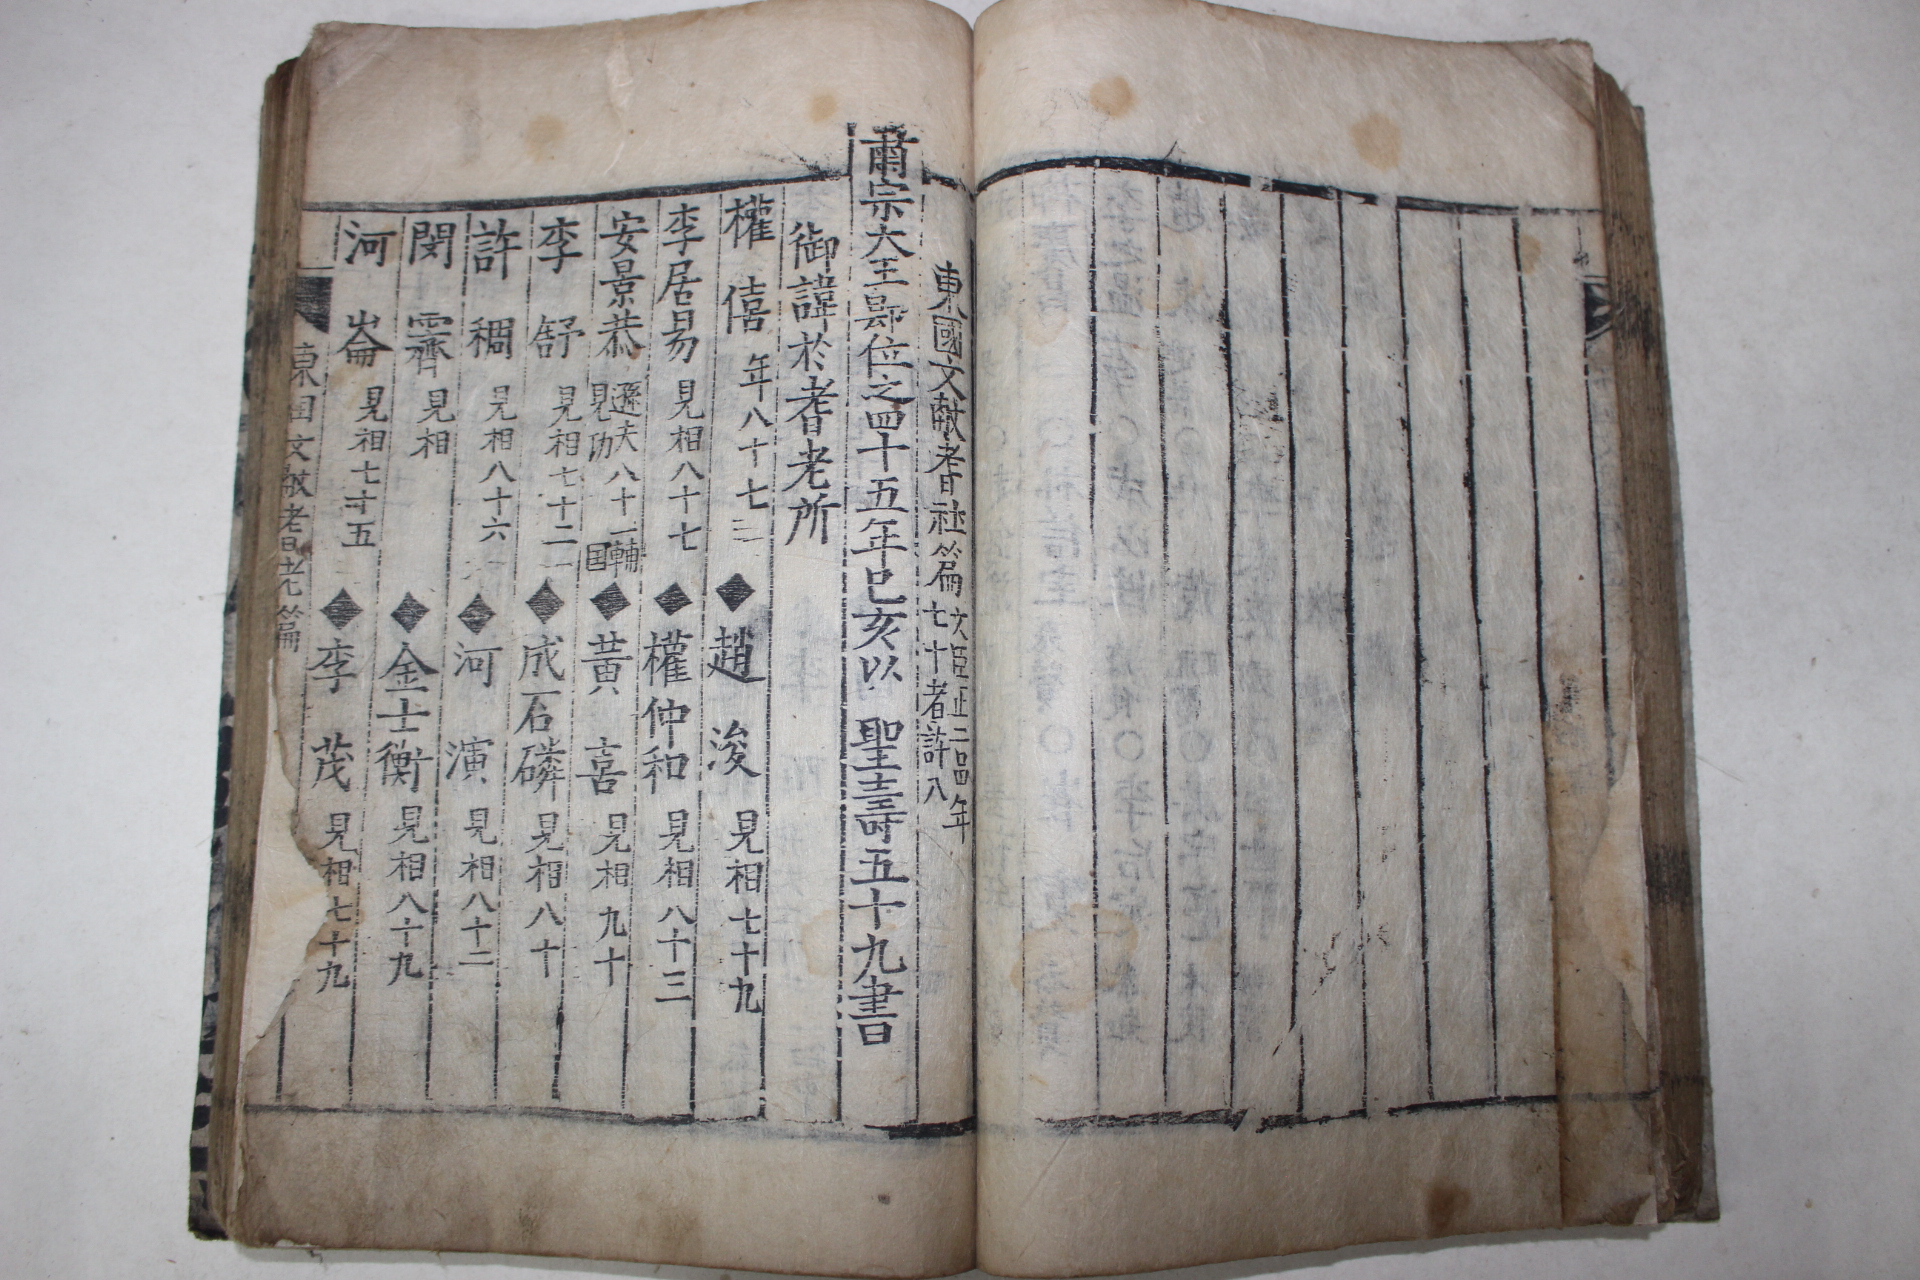 東國文獻耆社篇 文臣正二品年七十者許入
肅宗大王卽位之四十五年己亥以 聖壽五十九書
御諱於耆老所
權僖 年八十七 ◆ 趙浚 見相七十九
李居易 見相八十七 ◆ 權仲和 見相八十三
安景恭 見功 八十一 輔国 ◆ 黃喜 見相九十
李舒 見相七十二 ◆ 成石磷 見相八十
許稠 見相八十六 ◆ 河演 見相八十二
閔霽 見相 ◆ 金士衡 見相八十九
河崙 見相七十五 ◆ 李茂 見相七十九
東国文献耆老篇